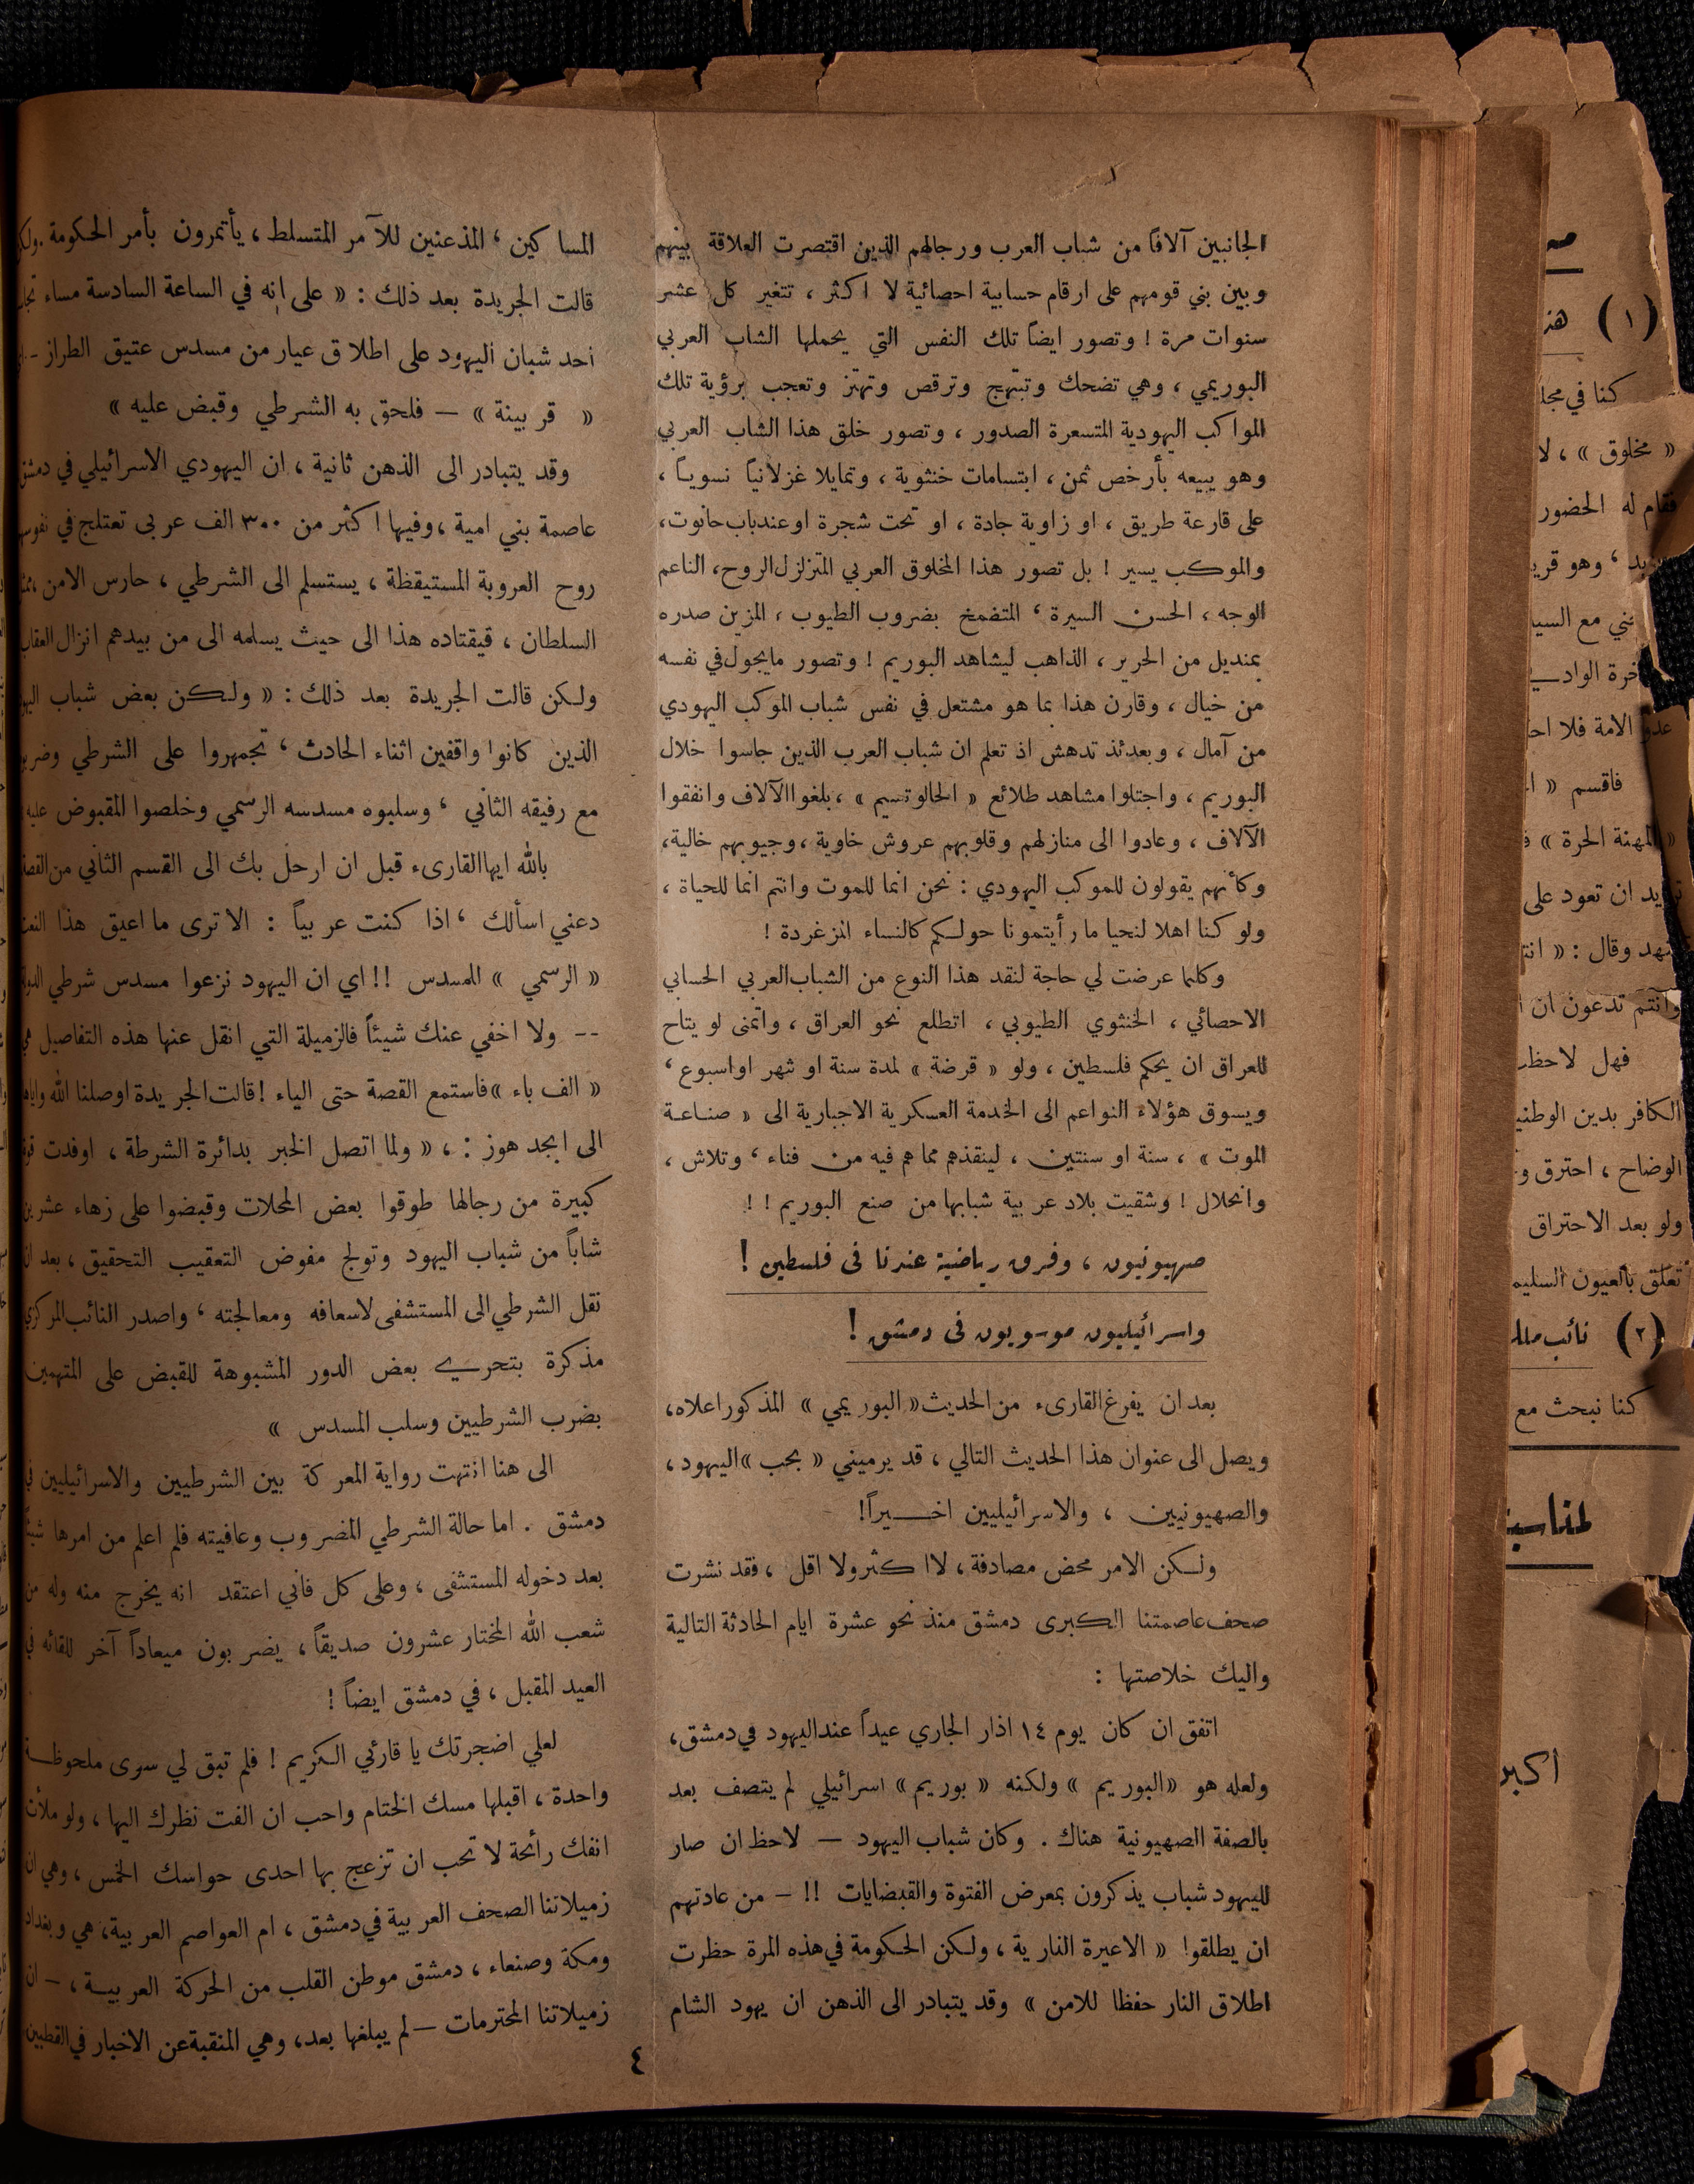 الجانبين آلافاً من شباب العرب ورجالهم الذين اقتصرت العلاقة بينهم
وبين بني قومهم على ارقام حسابية احصائية لا اكثر ، تتغير كل عشر
سنوات مرة ! وتصور ايضاً تلك النفس التي يحملها الشاب العربي
البوريمي ، وهي تضحك وتبتهج وترقص وتهتز وتعجب برؤية تلك
المواكب اليهودية المتسعرة الصدور ، وتصور خلق هذا الشاب العربي
وهو يبيعه بأرخص ثمن ، ابتسامات خنثوية ، وتمايلا غزلانياً نسوياً ،
على قارعة طريق ، او زاوية جادة ، او تحت شجرة او عند باب حانوت،
والموكب يسير ! بل تصور هذا المخلوق العربي المتزلزل الروح، الناعم
الوجه ، الحسن السيرة ، المتضمخ بضروب الطيوب ، المزين صدره
بمنديل من الحرير ، الذاهب ليشاهد البوريم ! وتصور مايجول في نفسه
من خيال ، وقارن هذا بما هو مشتعل في نفس شباب الموكب اليهودي
من آمال ، وبعدئذ تدهش اذ تعلم ان شباب العرب الذين جاسوا خلال
البوريم ، واجتلوا مشاهد طلائع « الحالوتسيم » ، بلغوا الآلاف وانفقوا
الآلاف ، وعادوا الى منازلهم وقلوبهم عروش خاوية ، وجيوبهم خالية،
وكأنهم يقولون للموكب اليهودي : نحن انما للموت وانتم انما للحياة ،
ولو كنا اهلا لنحيا ما رأيتمونا حولكم كالنساء المزغردة !
وكلما عرضت لي حاجة لنقد هذا النوع من الشباب العربي الحسابي
الاحصائي ، الخنثوي الطيوبي ، اتطلع نحو العراق ، واتمنى لو يتاح
للعراق ان يحكم فلسطين ، ولو « قرضة » لمدة سنة او شهر او اسبوع ،
ويسوق هؤلاء النواعم الى الخدمة العسكرية الاجبارية الى « صناعة
الموت » ، سنة او سنتين ، لينقذهم مما هم فيه من فناء ، وتلاش ،
وانحلال ! وشقيت بلاد عربية شبابها من صنع البوريم ! !
صهيونيون ، وفرق رياضية عندنا في فلسطين !
واسرائيليون موسويون في دمشق !
بعد ان يفرغ القارىء من الحديث « البوريمي » المذكور اعلاه،
ويصل الى عنوان هذا الحديث التالي ، قد يرميني « بحب » اليهود ،
والصهيونيين ، والاسرائيليين اخيراً!
ولكن الامر محض مصادفة ، لا اكثر ولا اقل ، فقد نشرت
صحف عاصمتنا الكبرى دمشق منذ نحو عشرة ايام الحادثة التالية
واليك خلاصتها :
اتفق ان كان يوم ١٤ اذار الجاري عيداً عند اليهود في دمشق،
ولعله هو «البوريم » ولكنه « بوريم » اسرائيلي لم يتصف بعد
بالصفة الصهيونية هناك . وكان شباب اليهود — لاحظ ان صار
لليهود شباب يذكرون بمعرض الفتوة والقبضايات !! – من عادتهم
ان يطلقوا « الاعيرة النارية ، ولكن الحكومة في هذه المرة حظرت
اطلاق النار حفظا للامن » وقد يتبادر الى الذهن ان يهود الشام
المساكين ، المذعنين للآمر المتسلط ، يأتمرون بأمر الحكومة .
قالت الجريدة بعد ذلك : « على انه في الساعة السادسة مساء
احد شبان اليهود على اطلاق عيار من مسدس عتيق الطراز –
« قربينة » — فلحق به الشرطي وقبض عليه »
وقد يتبادر الى الذهن ثانية ، ان اليهودي الاسرائيلي في دمشق
عاصمة بني امية ، وفيها اكثر من ٣٠٠ الف عربي تعتلج في
روح العروبة المستيقظة ، يستسلم الى الشرطي ، حارس الامن ،
السلطان ، فيقتاده هذا الى حيث يسلمه الى من بيدهم انزال العقاب
ولكن قالت الجريدة بعد ذلك : « ولكن بعض شباب
الذين كانوا واقفين اثناء الحادث ، تجمهروا على الشرطي
مع رفيقه الثاني ، وسلبوه مسدسه الرسمي وخلصوا المقبوض عليه
بالله ايها القارىء قبل ان ارحل بك الى القسم الثاني من القصة
دعني اسألك ، اذا كنت عربياً : الا ترى ما اعيق هذا
« الرسمي » للمسدس !! اي ان اليهود نزعوا مسدس شرطي
-- ولا اخفي عنك شيئاً فالزميلة التي انقل عنها هذه التفاصيل هي
« الف باء » فاستمع القصة حتى الياء ! قالت الجريدة اوصلنا الله
الى ابجد هوز : ، « ولما اتصل الخبر بدائرة الشرطة ، اوفدت قوة
كبيرة من رجالها طوقوا بعض المحلات وقبضوا على زهاء عشرين
شاباً من شباب اليهود وتولج مفوض التعقيب التحقيق ، بعد ان
نقل الشرطي الى المستشفى لاسعافه ومعالجته ، واصدر النائب المركزي
مذكرة بتحري بعض الدور المشبوهة للقبض على المتهمين
بضرب الشرطيين وسلب المسدس »
الى هنا انتهت رواية المعركة بين الشرطيين والاسرائيليين في
دمشق . اما حالة الشرطي المضروب وعافيته فلم اعلم من امرها شيئاً
بعد دخوله المستشفى ، وعلى كل فاني اعتقد انه يخرج منه وله من
شعب الله المختار عشرون صديقاً ، يضربون ميعاداً آخر للقائه في
العيد المقبل ، في دمشق ايضاً !
لعلي اضجرتك يا قارئي الكريم ! فلم تبق لي سوى ملحوظة
واحدة ، اقبلها مسك الختام واحب ان الفت نظرك اليها ، ولو ملأت
انفك رائحة لا تحب ان تزعج بها احدى حواسك الخمس ، وهي ان
زميلاتنا الصحف العربية في دمشق ، ام العواصم العربية، هي وبغداد
ومكة وصنعاء ، دمشق موطن القلب من الحركة العربية ، – ان
زميلاتنا المحترمات – لم يبلغها بعد ، وهي المنقبة عن الاخبار في القطبين
٤
(١) هذ
كنا في
« مخلوق » ، لا
فقام له الحضور
، وهو
مع السيد
عدو الامة فلا
فاقسم «
« المهنة الحرة »
ان تعود على
وقال : «
وانتم تدعون ان
فهل لاحظ
الكافر بدين
الوضاح ، احترق
ولو بعد الاحتراق
تعلق بالعيون
(٢) نائب
كنا نبحث مع
اكبر